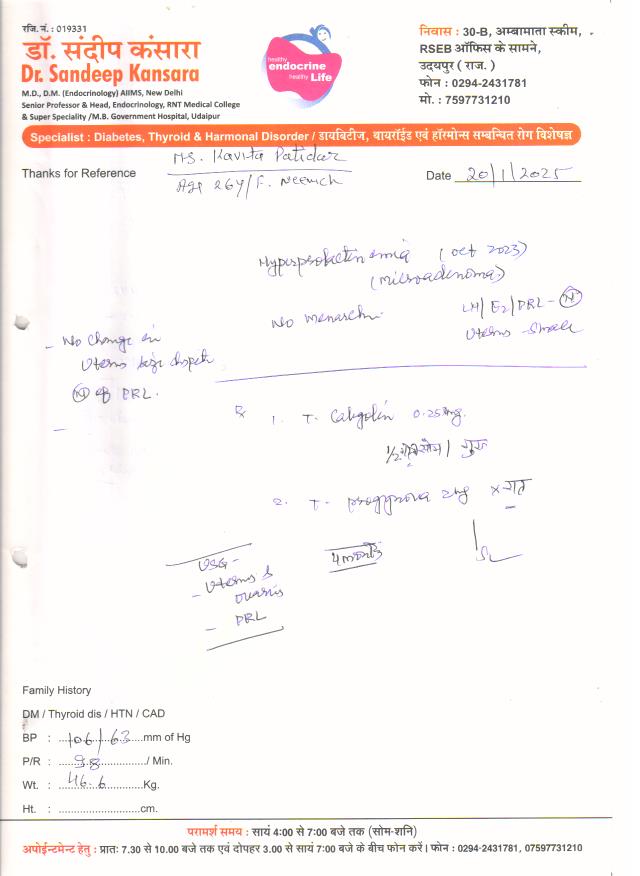 रजि. नं. : 019331
डॉ. संदीप कंसारा
Dr. Sandeep Kansara
M.D., D.M. (Endocrinology) AIIMS, New Delhi
Senior Professor & Head, Endocrinology, RNT Medical College
& Super Speciality /M.B. Government Hospital, Udaipur
healthy
endocrine
healthy Life
निवास : 30-B, अम्बामाता स्कीम,
RSEB ऑफिस के सामने,
उदयपुर ( राज. )
फोन : 0294-2431781
मो. : 7597731210
Specialist : Diabetes, Thyroid & Harmonal Disorder / डायबिटीज, थायरॉईड एवं हॉरमोन्स सम्बन्धित रोग विशेषज्ञ
Thanks for Reference
Ms. Kavita Patidar
Age 26y/F. Neemuch
Date 20/1/2025
Hyperprolactinemia (Oct 2023)
(Microadenoma)
No menarche
LH/E2/PRL - N
Uterus - small
- No change in
Uterus size despite
N of PRL.
Rx
1. T. Cabgolin 0.25mg.
1/2 सोम / गुरु
2. T. Progynova 2mg x रात
4 months
USG -
- Uterus &
Ovaries
- PRL
Family History
DM / Thyroid dis / HTN / CAD
BP : 106/63 mm of Hg
P/R : 98 / Min.
Wt. : 46.6 Kg.
Ht. : ........................... cm.
परामर्श समय : सायं 4:00 से 7:00 बजे तक (सोम-शनि)
अपोईन्टमेन्ट हेतु : प्रातः 7.30 से 10.00 बजे तक एवं दोपहर 3.00 से सायं 7:00 बजे के बीच फोन करें। फोन : 0294-2431781, 07597731210